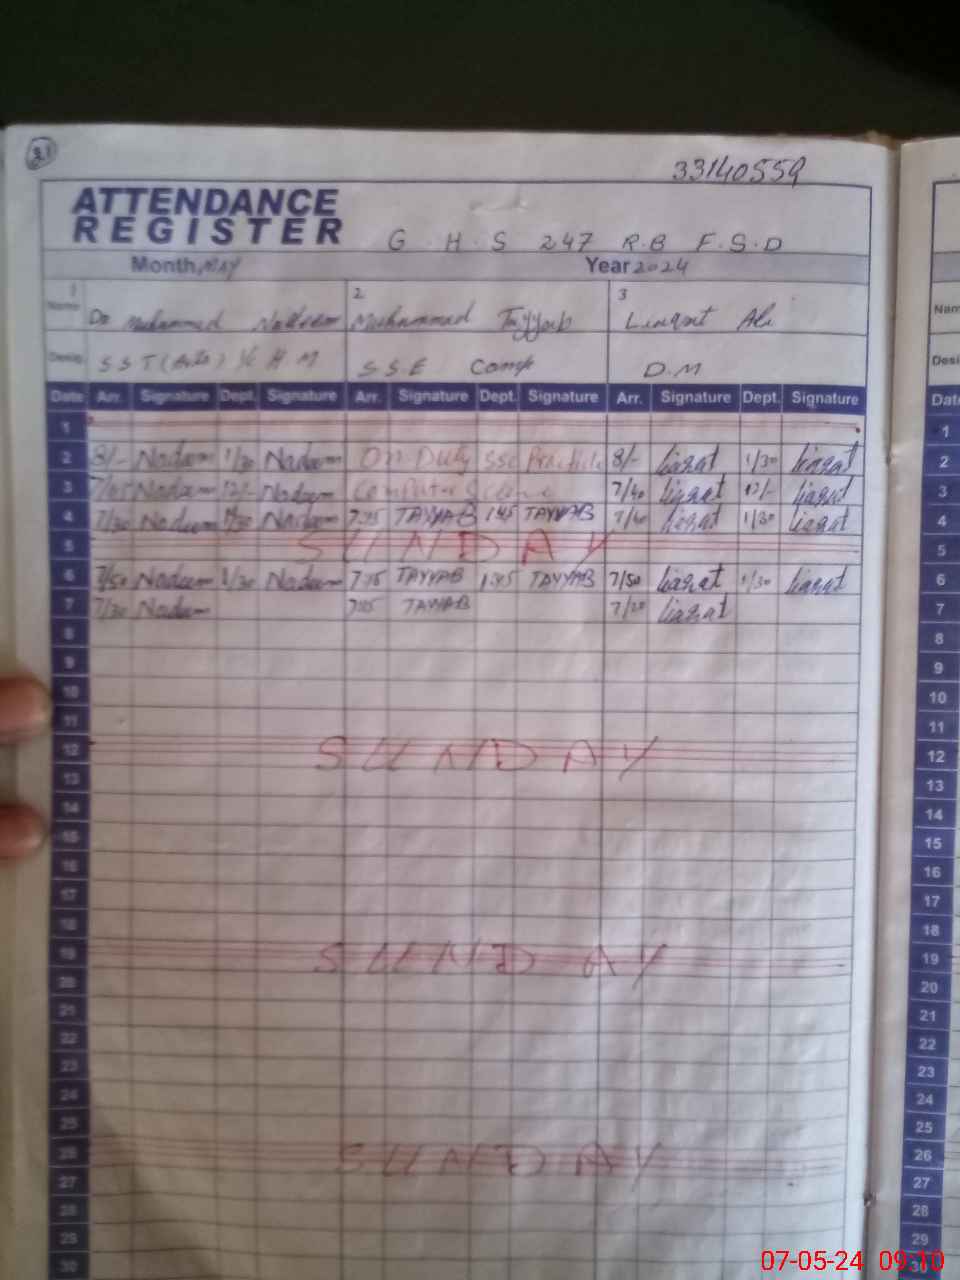 31
33140559
ATTENDANCE
REGISTER G.H.S 247 R.B F.S.D
Month, MAY Year 2024
Name 1 Dr Muhammad Nadeem 2 Muhammad Tayyab 3 Liaqat Ali Nam
Desig. SST (Arts) I/C H.M S.S.E Comp D.M Desi
Date Arr. Signature Dept. Signature Arr. Signature Dept. Signature Arr. Signature Dept. Signature Date
1 1
2 8/- Nadeem 1/30 Nadeem On Duty SSC Practicle 8/- liaqat 1/30 liaqat 2
3 Nadeem 12/- Nadeem Computer Science 7/40 liaqat 12/- liaqat 3
4 7/30 Nadeem 1/30 Nadeem 7:45 TAYYAB 1:45 TAYYAB 7/40 liaqat 1/30 liaqat 4
5 SUNDAY 5
6 7/50 Nadeem 1/30 Nadeem 7:45 TAYYAB 1:45 TAYYAB 7/50 liaqat 1/30 liaqat 6
7 7/30 Nadeem 7:45 TAYYAB liaqat 7
8 8
9 9
10 10
11 11
12 SUNDAY 12
13 13
14 14
15 15
16 16
17 17
18 18
19 SUNDAY 19
20 20
21 21
22 22
23 23
24 24
25 25
26 SUNDAY 26
27 27
28 28
29 29
30 30
07-05-24 09:10